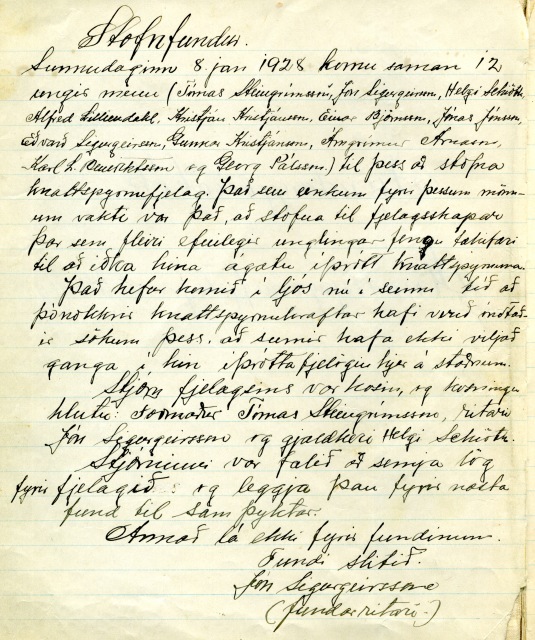 Stofnfundur.
Sunnudaginn 8 jan 1928 komu saman 12
ungir menn (Tómas Steingrímsson, Jón Sigurgeirsson, Helgi Schiöth
Alfred Lilliendahl, Kristján Kristjánsson, Einar Björnsson, Jónas Jónsson,
Edvard Sigurgeirsson, Gunnar Kristjánsson, Arngrímur Árnason,
Karl L. Benediktsson og Georg Pálsson) til þess að stofna
knattspyrnufjelag. Það sem einkum fyrir þessum mönn-
um vakti var það, að stofna til fjelagsskapar
þar sem fleiri efnilegir unglingar fengu tækifæri
til að iðka hina ágætu íþrótt knattspyrnuna.
Það hefur komið í ljós nú í seinni tíð að
þónokkrir knattspyrnukraftar hafi verið ónotað-
ir sökum þess, að sumir hafa ekki viljað
ganga í hin íþróttafjelögin hjer á staðnum.
Stjórn fjelagsins var kosin, og kosningu
hlutu: Formaður Tómas Steingrímsson, ritari
Jón Sigurgeirsson og gjaldkeri Helgi Schiöth.
Stjórninni var falið að semja lög
fyrir fjelagið og leggja þau fyrir næsta
fund til samþyktar.
Annað lá ekki fyrir fundinum.
Fundi slitið.
Jón Sigurgeirsson
(fundarritari)